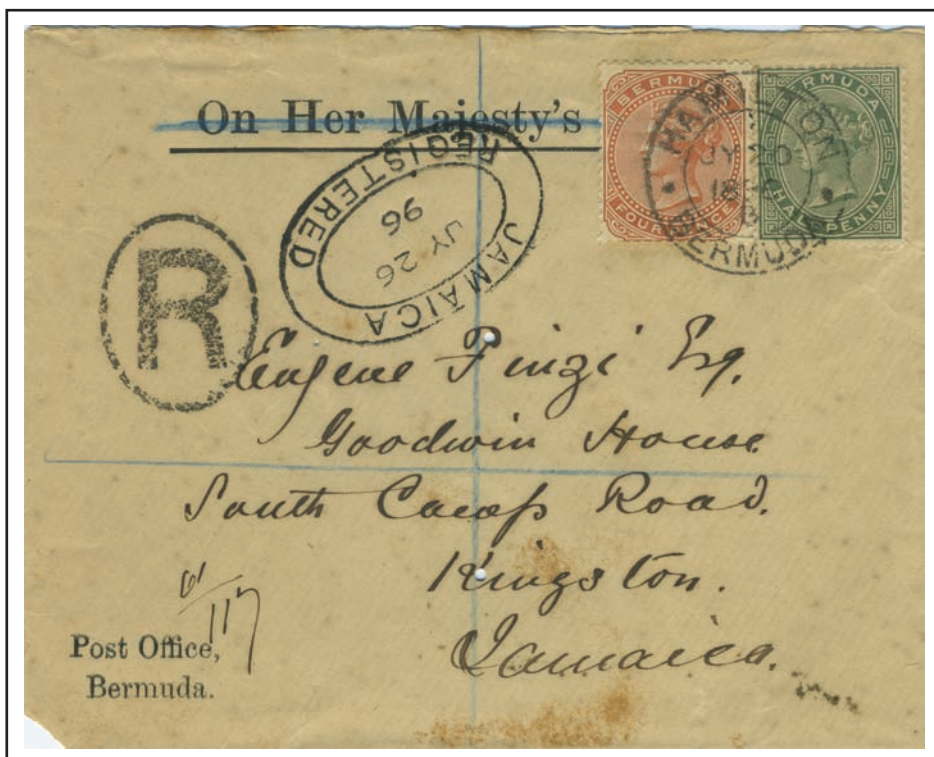 On Her Majesty's
BERMUDA
FOUR PENCE
BERMUDA
HALFPENNY
HAMILTON
BERMUDA
JAMAICA
JY 26
96
REGISTERED
R
Eugene Finzi Esq.
Goodwin House
South Camp Road.
Kingston.
Jamaica.
117
Post Office,
Bermuda.